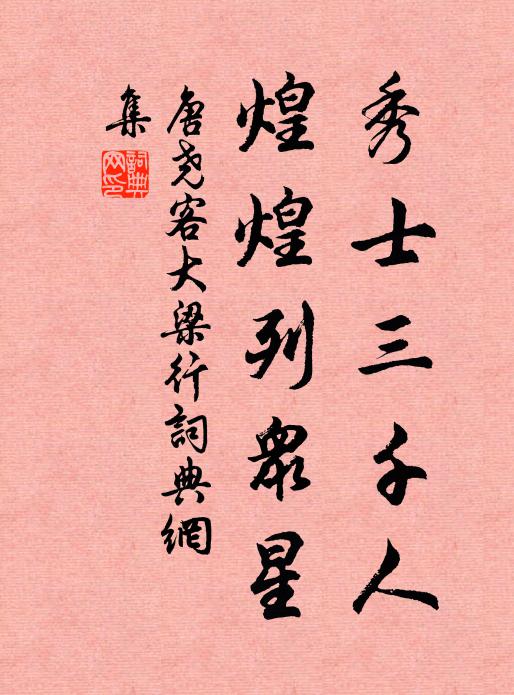 秀士三千人
煌煌列眾星
唐堯客大梁行詞典網
集
詞典
网印